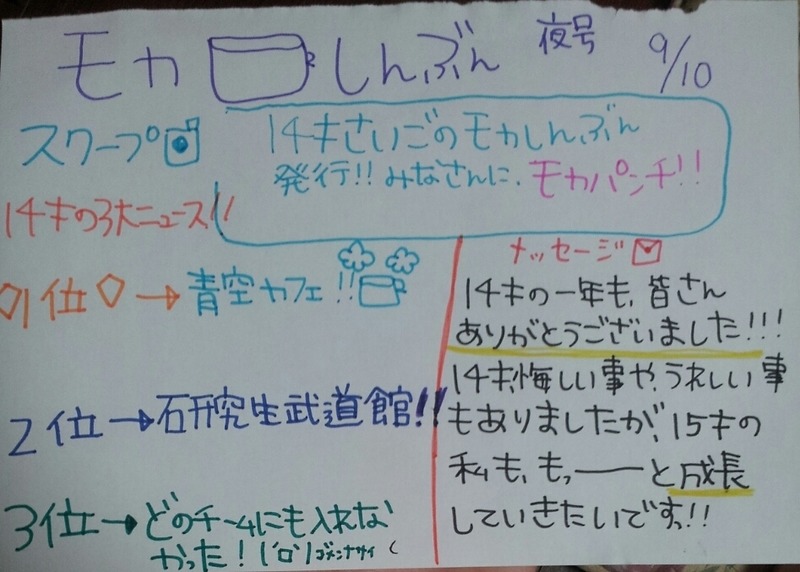 モカしんぶん 夜号 9/10
スクープ
14才さいごのモカしんぶん
発行!! みなさんに、モカパンチ!!
14才の3大ニュース!!
1位→青空カフェ!!
2位→研究生武道館!!
3位→どのチームにも入れな
かった!(´ロ`)ゴメンナサイ(
メッセージ
14才の一年も、皆さん
ありがとうございました!!!
14才、悔しい事や、うれしい事
もありましたが、15才の
私も、もっーーと成長
していきたいですっ!!